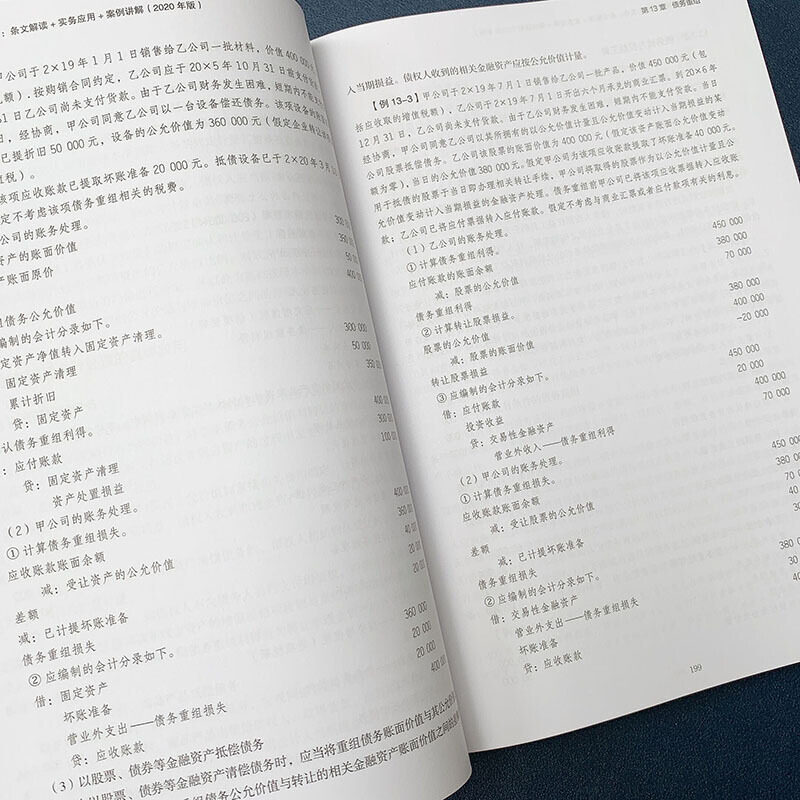 ：条文解读+实务应用+案例讲解（2020年版）
甲公司于2×19年1月1日销售给乙公司一批材料，价值400 0
税额）.按购销合同约定，乙公司应于20×5年10月31日前支付货
31日乙公司尚未支付货款。由于乙公司财务发生困难，短期内不能支
日，经协商，甲公司同意乙公司以一台设备偿还债务。该项设备的
已提折旧50 000元，设备的公允价值为360 000元（假定企业转让
值税）。
该项应收账款已提取坏账准备20 000元。抵债设备已于2×20年3月
定不考虑该项债务重组相关的税费。
公司的账务处理。
资产的账面价值
产账面原价
债务公允价值
编制的会计分录如下。
定资产净值转入固定资产清理。
固定资产清理 300 000
累计折旧 50 000
贷：固定资产 350
认债务重组利得。
：应付账款 400 00
贷：固定资产清理 300 00
资产处置损益 100 00
（2）甲公司的账务处理。
①计算债务重组损失。
应收账款账面余额 400 00
减：受让资产的公允价值 360 00
差额 40 00
减：已计提坏账准备 20 00
债务重组损失 20 00
②应编制的会计分录如下。
借：固定资产 360 000
坏账准备 20 000
营业外支出——债务重组损失 20 000
贷：应收账款 400 00
（3）以股票、债券等金融资产抵偿债务
以股票、债券等金融资产清偿债务时，应当将重组债务账面价值与其公允价
组债务公允价值与转让的相关金融资产账面价值之间的
第13章 债务重组
入当期损益。债权人收到的相关金融资产应按公允价值计量。
【例13-3】甲公司于2×19年7月1日销售给乙公司一批产品，价值450 000元（包
括应收取的增值税额），乙公司于2×19年7月1日开出六个月承兑的商业汇票。到20×6年
12月31日，乙公司尚未支付货款。由于乙公司财务发生困难，短期内不能支付货款。当日
经协商，甲公司同意乙公司以其所拥有的以公允价值计量且公允价值变动计入当期损益的某
公司股票抵偿债务。乙公司该股票的账面价值为400 000元（假定该资产账面公允价值变动
额为零），当日的公允价值380 000元。假定甲公司为该项应收账款提取了坏账准备40 000元。
用于抵债的股票于当日即办理相关转让手续，甲公司将取得的股票作为以公允价值计量且公
允价值变动计入当期损益的金融资产处理。债务重组前甲公司已将该项应收票据转入应收账
款；乙公司已将应付票据转入应付账款。假定不考虑与商业汇票或者应付款项有关的利息。
（1）乙公司的账务处理。
①计算债务重组利得。
应付账款的账面余额 450 000
减：股票的公允价值 380 000
债务重组利得 70 000
②计算转让股票损益。
股票的公允价值 380 000
减：股票的账面价值 400 000
转让股票损益 -20 000
③应编制的会计分录如下。
借：应付账款 450 000
投资收益 20 000
贷：交易性金融资产 400 000
营业外收入——债务重组利得 70 000
（2）甲公司的账务处理。
①计算债务重组损失。
应收账款账面余额 450 000
减：受让股票的公允价值 380 000
差额 70 0
减：已提坏账准备 40
债务重组损失 30
②应编制的会计分录如下。
借：交易性金融资产 380 0
营业外支出——债务重组损失 30 0
坏账准备
贷：应收账款
199